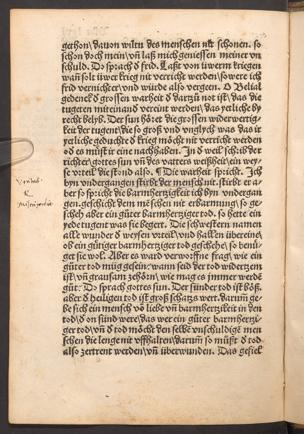 gethon/ dauon wiltu des menschen nit schonen. so
schon doch mein/ vñ laß mich geniessen meiner vn
schuld. Do sprach d frid. Laßt von üwerm kriegen
wañ solt üwer krieg nit verricht werden/ so were ich
frid vernichtet/ vnd würde also vergen. d Belial
gedenck d grossen warheit d' darzů not ist/ das die
tugeten miteinand vereint werden/ das yetliche by
recht belyb. Der sun hôret die grossen widerwertig
keit der tugent/ die so groß vnd vnglych was das ir
yetliche gedacht d krieg môcht nit verricht werden
od es müst ir eine nachhalten. In d weil schreib der
richter/ gottes sun vñ des vatters weißheit/ ein wey-
se vrteil die stond also. ¶ Die warheit spricht. Ich
byn vndergangen stirbt der mensch nit. stirbt er a-
ber so spricht die barmhertzigkeit ich byn vndergan
gen. geschicht dem mêschen nit erbarmung/ so ge-
scheh aber ein gůter barmhertziger tod. so hette ein
yede tugent was sie begert. Die schwestern namen
alle wunder d weysen vrteil/ vnd hallen überein/
ob ein gütiger barmhertziger tod geschehe/ so benü-
get sie wol. Aber es ward verworffne frag/ wie ein
gůter tod müg gesein: wann seid der tod widerzem
ist/ vñ grausam zehôrn/ wie mag es immer werdē
gůt: Do sprach gottes sun. Der sünder tod ist bôß.
aber d heiligen tod ist groß schatzs wert. darum ge-
be sich ein mensch vō liebe vñ barmhertzikeit in den
tod/ d on sünd were/ das wer ein gůter barmhertzi-
ger tod/ vñ d tod môcht den selbē vnschuldige men
schen die lenge nit vffhalten/ darum so müst d tod
also zertrent werden/ vñ überwunden. Das gefiel